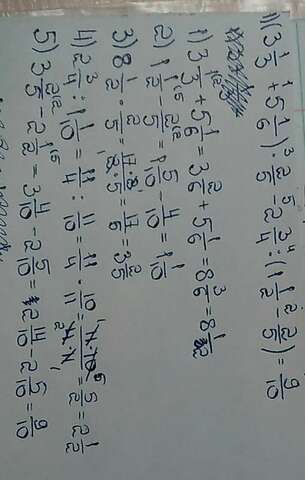 1) (3 1/3 + 5 1/6) · 2/5 - 2 3/4 : (1 1/2 - 2/5) = 9/10
1) 3 1/3 + 5 1/6 = 3 2/6 + 5 1/6 = 8 3/6 = 8 1/2
2) 1 1/2 - 2/5 = 1 5/10 - 4/10 = 1 1/10
3) 8 1/2 · 2/5 = 17·2/2·5 = 17/5 = 3 2/5
4) 2 3/4 : 1 1/10 = 11/4 : 11/10 = 11/4 · 10/11 = 11·10/4·11 = 5/2 = 2 1/2
5) 3 2/5 - 2 1/2 = 3 4/10 - 2 5/10 = 2 14/10 - 2 5/10 = 9/10